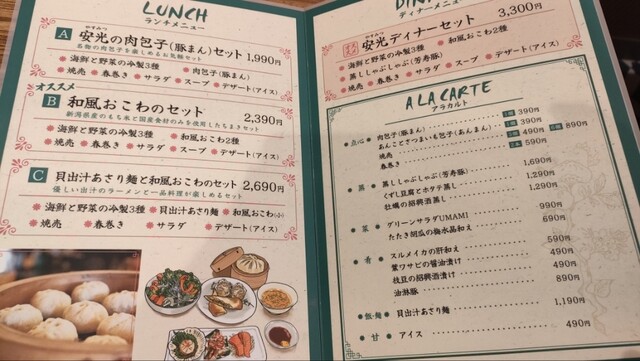 LUNCH
ランチメニュー
A 安光の肉包子(豚まん)セット 1,990円
名物の肉包子を楽しめるお気軽セット
海鮮と野菜の冷製3種 肉包子(豚まん)
焼売 春巻き サラダ スープ デザート(アイス)
オススメ
B 和風おこわのセット 2,390円
新潟県産のもち米と国産食材のみを使用したちまきセット
海鮮と野菜の冷製3種 和風おこわ2種
焼売 春巻き サラダ スープ デザート(アイス)
C 貝出汁あさり麺と和風おこわのセット 2,690円
優しい出汁のラーメンと一品料理が楽しめるセット
海鮮と野菜の冷製3種 貝出汁あさり麺 和風おこわ(小)
焼売 春巻き サラダ デザート(アイス)
ディナーメニュー
安光ディナーセット 3,300円
海鮮と野菜の冷製3種 和風おこわ2種
蒸ししゃぶしゃぶ(芳寿豚)
焼売 春巻き サラダ スープ デザート(アイス)
A LA CARTE
アラカルト
点心 肉包子(豚まん) 390円
あんことさつまいも包子(あんまん) 390円
焼売 490円 890円
春巻き 590円
蒸 蒸ししゃぶしゃぶ(芳寿豚) 1,690円
くずし豆腐とホタテ蒸し 1,290円
牡蠣の招興酒蒸し 1,290円
菜 グリーンサラダUMAMI 990円
たたき胡瓜の梅水晶和え 690円
肴 スルメイカの肝和え 590円
葉ワサビの醤油漬け 490円
枝豆の招興酒漬け 490円
油淋豚 890円
飯・麺 貝出汁あさり麺 1,190円
甘 アイス 490円